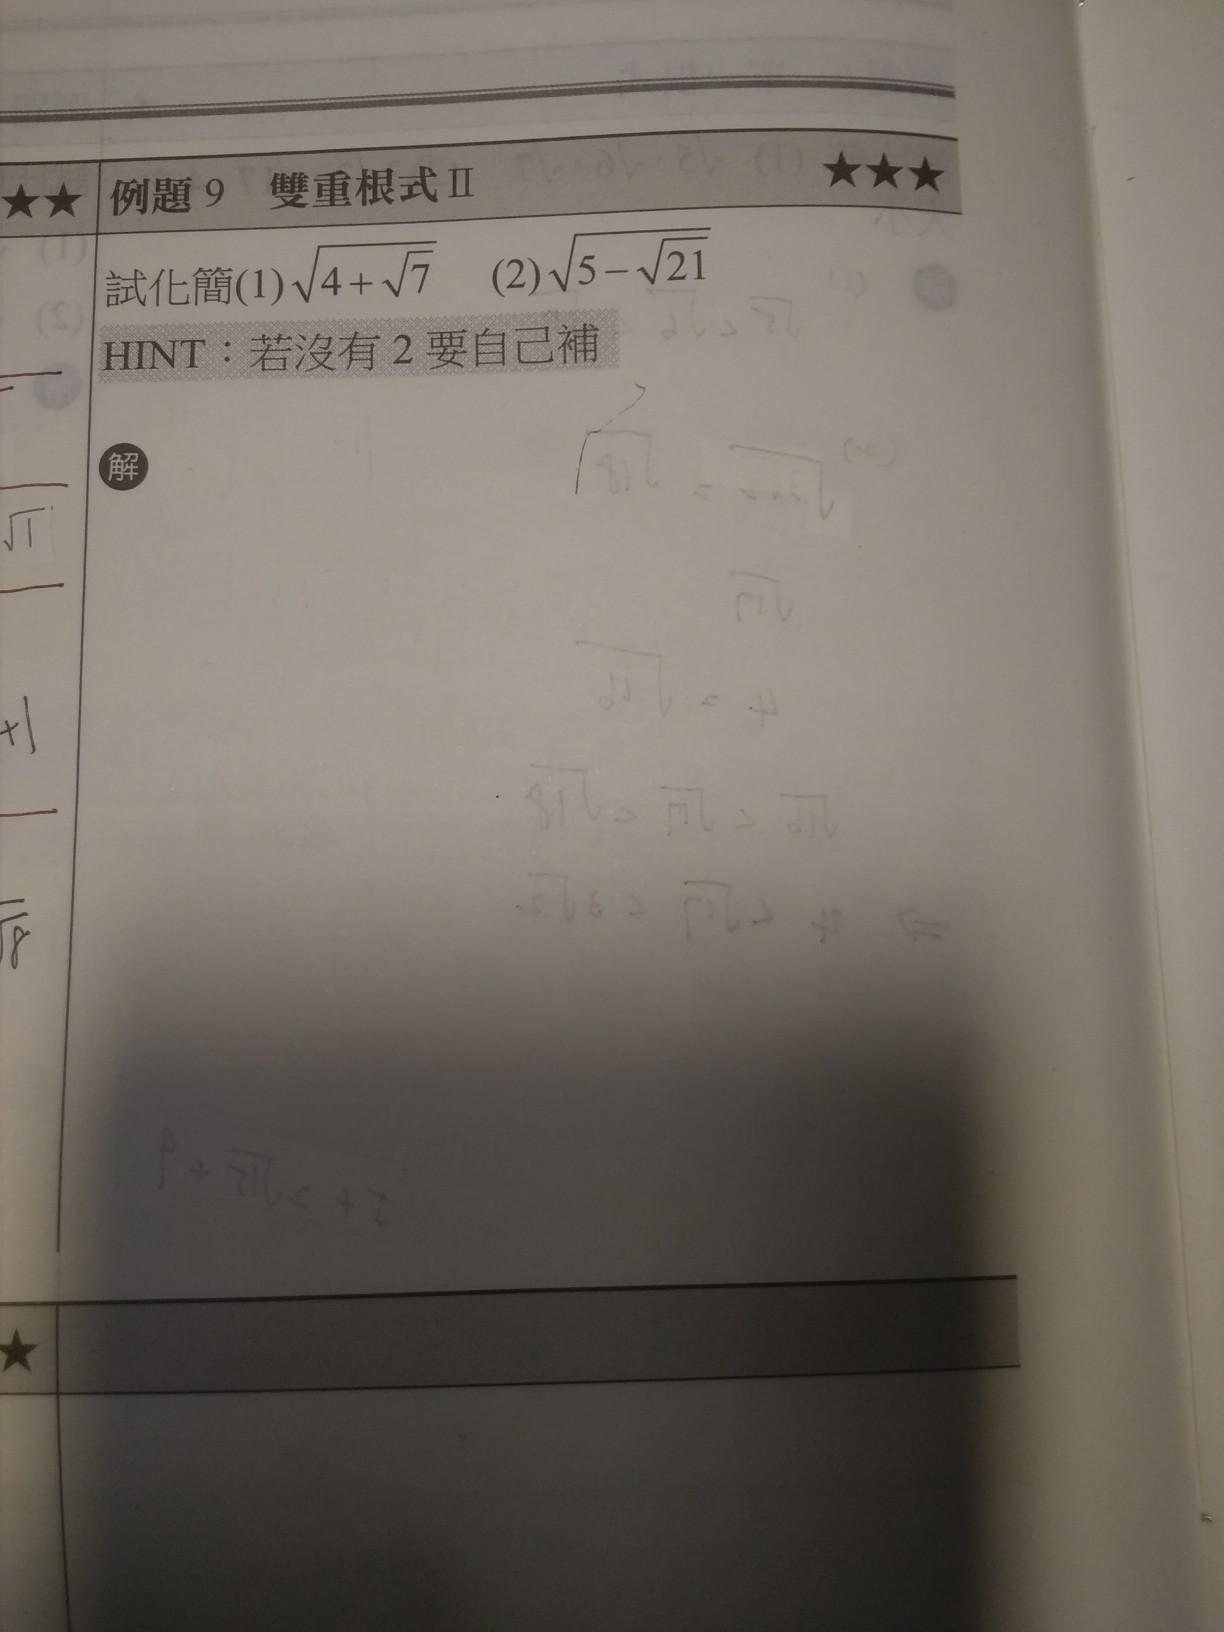 ★★
例題 9 雙重根式 II ★★★
試化簡(1)√(4+√7) (2)√(5−√21)
HINT：若沒有 2 要自己補
解
√1
+1
√8
★